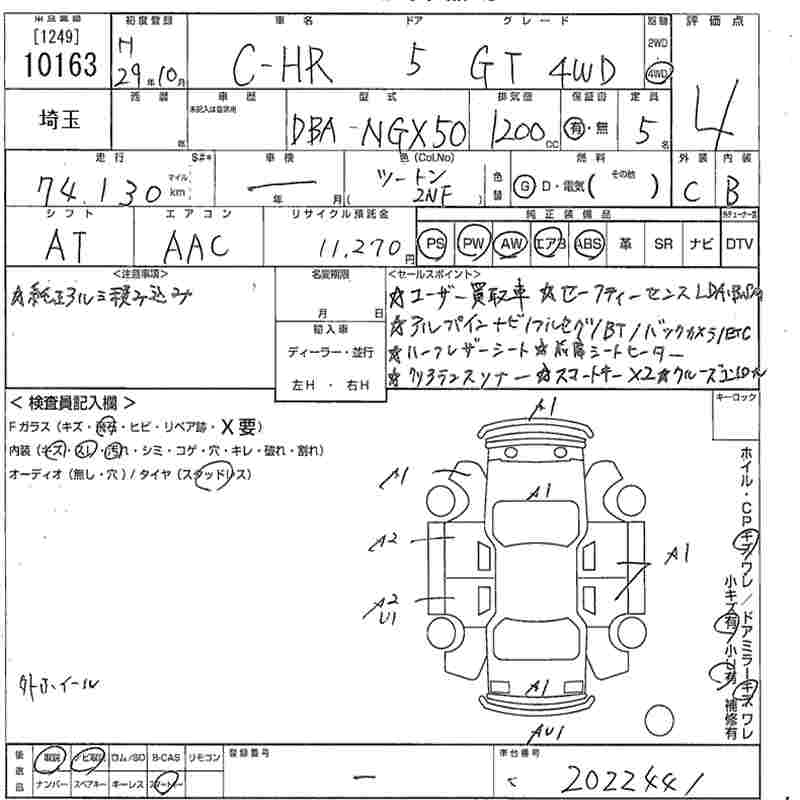 [1249]
10163
初度登録
H
29年10月
車名
C-HR
ドア
5
グレード
GT 4WD
駆動
2WD
4WD
評価点
4
埼玉
西暦
年
車歴
未記入は自家用
型式
DBA-NGX50
排気量
1200cc
保証書
有・無
定員
5名
走行
74,130
マイル
km
S#*
車検
年 月
色(Col.No)
ツートン
2NF
色替
燃料
G D・電気( その他 )
外装
C
内装
B
シフト
AT
エアコン
AAC
リサイクル預託金
11,270円
純正装備品
PS PW AW エアB ABS 革 SR ナビ DTV
<注意事項>
☆純正アルミ積み込み
名変期限
月 日
輸入車
ディーラー・並行
左H・右H
<セールスポイント>
☆ユーザー買取車 ☆セーフティーセンス
☆アルパインナビ/フルセグ/BT/バックカメラ/ETC
☆ハーフレザーシート☆前席シートヒーター
☆クリアランスソナー ☆スマートキー×2☆クルーズコントロール
<検査員記入欄>
Fガラス(キズ・ ・ヒビ・リペア跡・X要)
内装(キズ・スレ・汚れ・シミ・コゲ・穴・キレ・破れ・割れ)
オーディオ(無し・穴)/タイヤ(スタッドレス)
キーロック
A1
A1
A1
A2
A1
A2
U1
A1
AU1
ホイル・CPキズワレ/ドアミラーキズワレ
小キズ有/小U有 補修有
外ホイール
後送品
取説 ナビ取説 ロム/SD B-CAS リモコン
ナンバー スペアキー キーレス スマートキー
登録番号
ー
車台番号
2022441